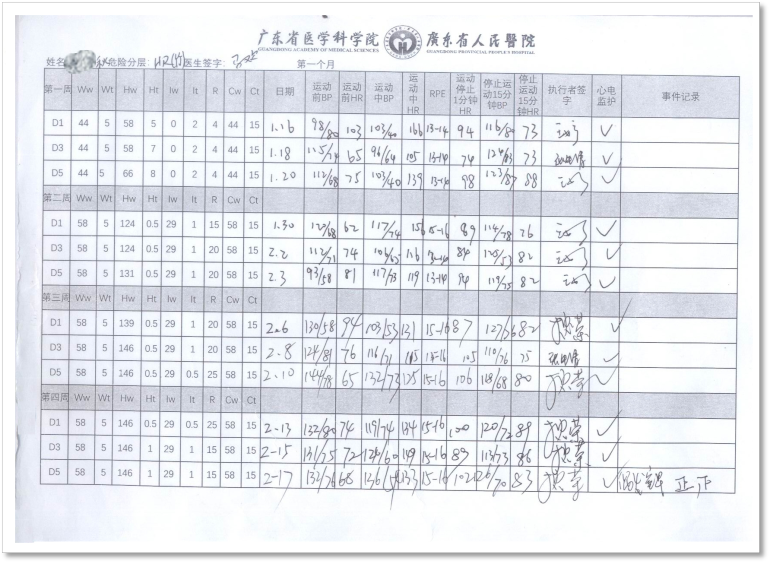 广东省医学科学院 廣東省人民醫院
GUANGDONG ACADEMY OF MEDICAL SCIENCES GUANGDONG PROVINCIAL PEOPLE'S HOSPITAL
姓名 危险分层: 医生签字: 第一个月
第一周 Ww Wt Hw Ht Iw It R Cw Ct 日期 运动前BP 运动前HR 运动中BP 运动中HR RPE 运动停止1分钟HR 停止运动15分钟BP 停止运动15分钟HR 执行者签字 心电监护 事件记录
D1 44 5 58 5 0 2 4 44 15 1.16 98/80 103 103/40 166 13-14 94 116/80 73 ✓
D3 44 5 58 7 0 2 4 44 15 1.18 115/74 65 96/64 105 13-14 74 73 ✓
D5 44 5 66 8 0 2 4 44 15 1.20 112/68 75 103/40 139 13-14 98 123/87 88 ✓
第二周 Ww Wt Hw Ht Iw It R Cw Ct
D1 58 5 124 0.5 29 1 15 58 15 1.30 62 117/74 156 15-16 89 114/78 76 ✓
D3 58 5 124 0.5 29 1 20 58 15 2.2 112/71 74 116 13-14 84 82 ✓
D5 58 5 131 0.5 29 1 20 58 15 2.3 93/58 81 117/73 119 13-14 94 119/75 82 ✓
第三周 Ww Wt Hw Ht Iw It R Cw Ct
D1 58 5 139 0.5 29 1 20 58 15 2.6 130/58 94 103/53 131 15-16 87 82 ✓
D3 58 5 146 0.5 29 1 20 58 15 2.8 124/81 76 116/71 15-16 105 110/76 75 ✓
D5 58 5 146 0.5 29 0.5 25 58 15 2.10 144/78 65 132/73 15-16 106 80 ✓
第四周 Ww Wt Hw Ht Iw It R Cw Ct
D1 58 5 146 0.5 29 0.5 25 58 15 2-13 132/80 74 119/74 134 15-16 100 120/72 89 ✓
D3 58 5 146 1 29 1 20 58 15 2-15 131/75 72 15-16 89 113/73 86 ✓
D5 58 5 146 1 29 1 15 58 15 2-17 132/76 68 133 15-16 102 83 ✓